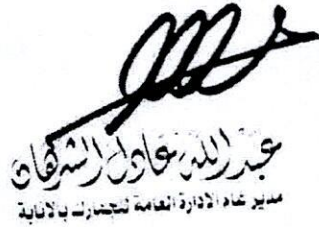 عبدالله عادل الشرهان
مدير عام الإدارة العامة للجمارك بالإنابة